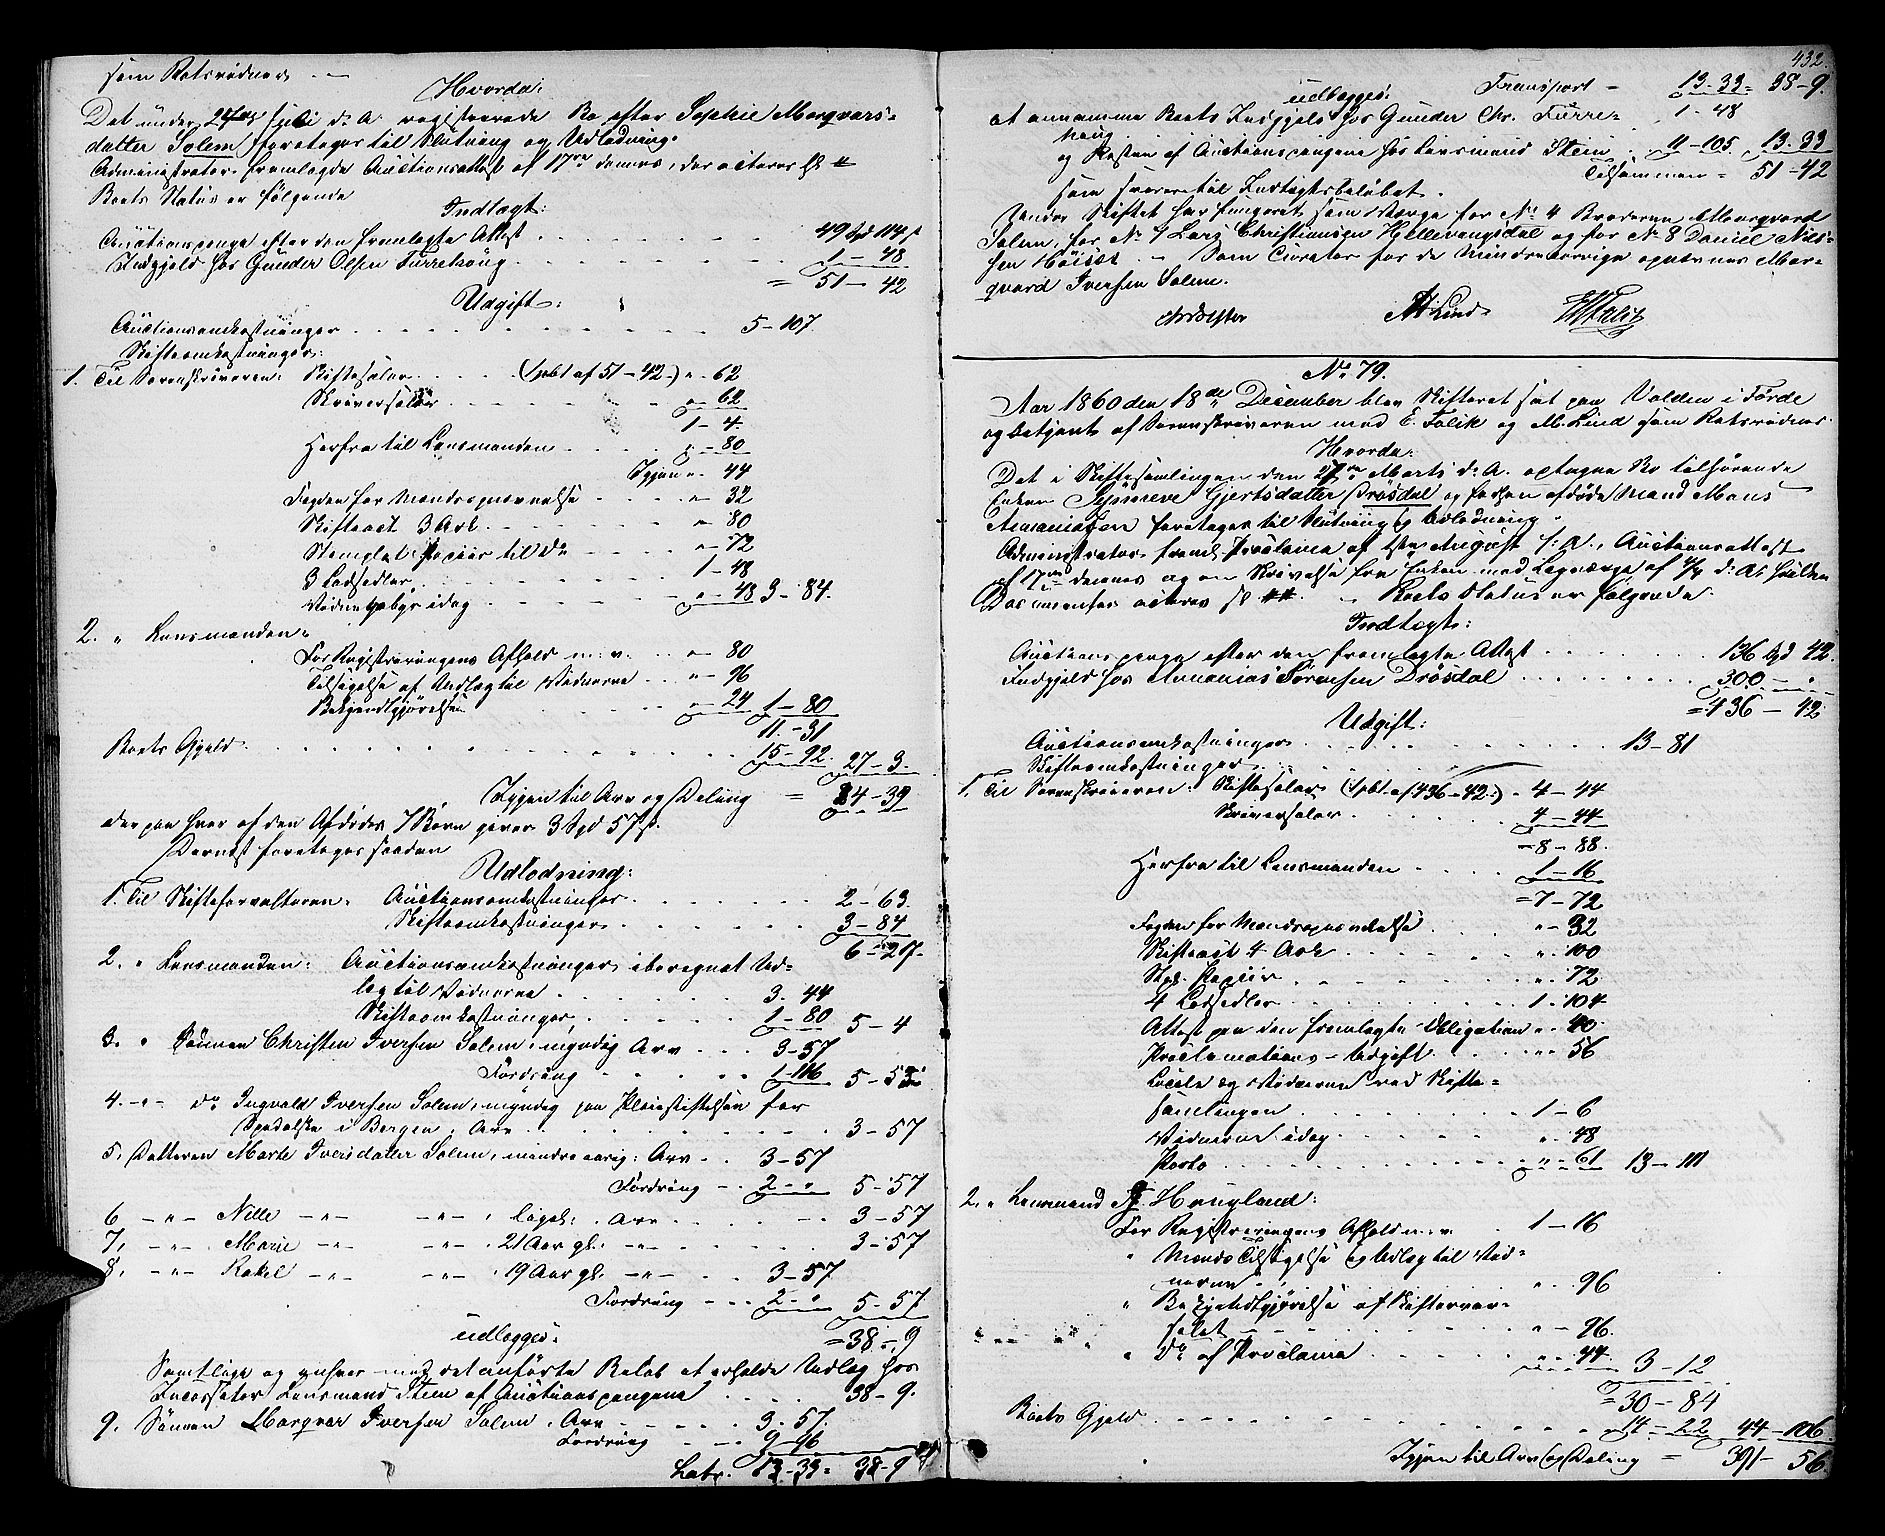 som Retsvidner. —
Hvorda:
Det under 27de Juli d: A. registrerede Bo efter Sophie Marqvars-
datter Solem foretages til Slutning og Udlodning.
Administrator fremlagde Auctionsattest af 17de dennes, der acteres sk #
Boets Status er følgende
Indtægt:
Auctionspenge efter den fremlagte Attest . . . 49 Spd 114 s
Indgjeld hos Gunder Olsen Furrehoug . . . 1 - 48
= 51 - 42
Udgift:
Auctionsomkostninger . . . 5 - 107.
Skifteomkostninger:
1. Til Sorenskriveren: Skiftesalær . . . (1pCt af 51-42.) " - 62
Skriversalær . . . " - 62
1 - 4.
Herfra til Lensmanden . . . " - 80
Igjen " - 44
Fogden for Mændsopnævnelse . . . " - 32
Skifteact 3 Ark . . . " - 80
Stemplet Papiir til Do . . . " - 72
3 Ledsedler . . . 1 - 48
Vidnegebyr idag . . . " - 48 3 - 84.
2. " Lensmanden:
For Registreringens Afhold m. v. . . " - 80
Tilsigelse af Udlæg til Vidnerne . . " - 96
Bekjendtgjørelse . . . " - 24 1 - 80
11 - 31
Boets Gjeld . . . 15 - 92. 27 - 3.
Igjen til Arv og Deling = 24 - 39
der paa hver af den Afdødes 7 Børn giver 3 Spd 57 s.
Dernæst foretages saadan
Udlodning:
1. Til Skifteforvalteren: Auctionsomkostninger . . . 2 - 63.
Skifteomkostninger . . . 3 - 84
6 - 27 -
2. " Lensmanden: Auctionsomkostninger iberegnet Ud-
læg til Vidnerne . . . 3 - 44
Skifteomkostninger . . . 1 - 80 5 - 4
3. " Sønnen Christen Iversen Solem, myndig Arv . . . 3 - 57
Fordring . . . 1 - 116 5 - 53
4. - " - do Ingvald Iversen Solem, myndig paa Pleiestiftelsen for
Spedalske i Bergen, Arv . . . 3 - 57
5. Datteren Marte Iversdatter Solem, mindreaarig: Arv . . 3 - 57
Fordring . . 2 - " 5 - 57
6 - " - Nille - " - - " - , ligel: , Arv . . . 3 - 57
7, - " - , Marie - " - - " - , 21 Aar gl. - " - . . 3 - 57
8, - " - Rakel - " - - " - , 19 Aar gl. - " - . . 3 - 57
Fordring . . . 2 - " 5 - 57
udlægges: = 38 - 9
Samtlige og enhver med det anførte Beløb at erholde Udlæg hos
Incassator Lensmand Stem af Auctionspengene . . . 38 - 9.
9. Sønnen Marqvar Iversen Solem, Arv . . . 3 - 57.
Fordring . . . 9 - 96
Latr. 13 - 33 = 38 - 9
432.
udlægges: Transport - 13 - 33 = 38 - 9.
at annamme Boets Indgjeld hos Gunder Chr. Furre-
houg . . . 1 - 48
og Resten af Auctionspengene hos Lensmand Stem . 11 - 105. 13 - 33
Tilsammen = 51 - 42
som svarer til Indtægtsbeløbet.
Under Skiftet har fungeret som Værge for No 4 Broderen Marqvard
Solem, for No 7 Lars Christiansen Hellevangsdal og for No 8 Daniel Niel-
sen Høisæt. - Som Curator for de Mindreaarige opnævnes Mar-
qvard Iversen Solem.
M Lind EM Falik
No 79.
Aar 1860 den 18de December blev Skifteret sat paa Volden i Førde
og betjent af Sorenskriveren med E. Falik og M. Lind som Retsvidner.
Hvorda:
Det i Skiftesamlingen den 27de Marts d: A. optagne Bo tilhørende
Enken Synneve Gjertsdatter Drösdal og hendes afdøde Mand Mons
Annaniasen foretages til Slutning og Udlodning.
Administrator freml. Proclama af 1ste August f: A., Auctionsattest
af 17de dennes og en Skrivelse fra Enken med Laugværge af
Documenter acteres sk ##. - Boets Status er følgende:
Indtægt:
Auctionspenge efter den fremlagte Attest . . . 136 Spd 42.
Indgjeld hos Annanias Sørensen Drösdal . . . 300 - "
= 436 - 42
Udgift:
Auctionsomkostninger . . . 13 - 81
Skifteomkostninger:
1. Til Sorenskriveren: Skiftesalær (1pCt af 436-42.) - 4 - 44
Skriversalær . . . 4 - 44
= 8 - 88.
Herfra til Lensmanden . . . 1 - 16
= 7 - 72
Fogden for Mændsopnævnelse . . . " - 32
Skifteact 4 Ark . . . " - 100
Stpl. Papiir . . . " - 72
4 Ledsedler . . . 1 - 104
Attest paa den fremlagte Obligation " - 40.
Proclamations-Udgift . . . " - 56
Locale og Vidnerne ved Skifte-
samlingen . . . 1 - 6
Vidnerne idag . . . " - 48
Porto . . . " - 61 13 - 111
2. " Lensmand Haugland:
For Registreringens Afhold m. v. . 1 - 16
" Mænds Tilsigelse og Udlæg til Vid-
nerne . . . " - 96
" Bekjendtgjørelse af Skiftevar-
selet . . . " - 96.
" Do af Proclama . . . " - 44. 3 - 12
= 30 - 84
Boets Gjeld . . . 14 - 22 44 - 106.
Igjen til Arv og Deling = 391 - 56